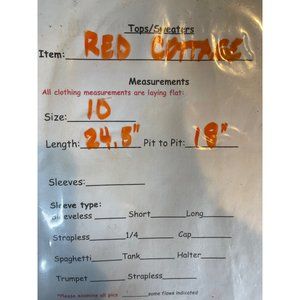 Tops/Sweaters
Item: RED COTTAGE
Measurements
All clothing measurements are laying flat:
Size: 10
Length: 24.5" Pit to Pit: 18"
Sleeves:
Sleeve type:
Sleeveless Short Long
Strapless 1/4 Cap
Spaghetti Tank Halter
Trumpet Strapless
*Please examine all pics some flaws indicated